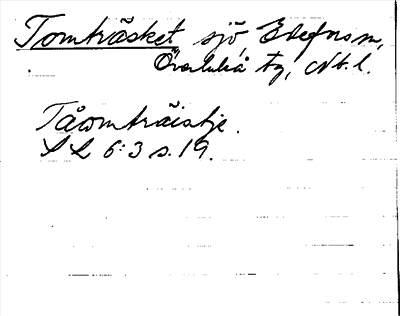 Tomträsket sjö, Edefors sn,
Överluleå tg, Nb. l.
Tåomträistje.
LL 6:3 s. 19.